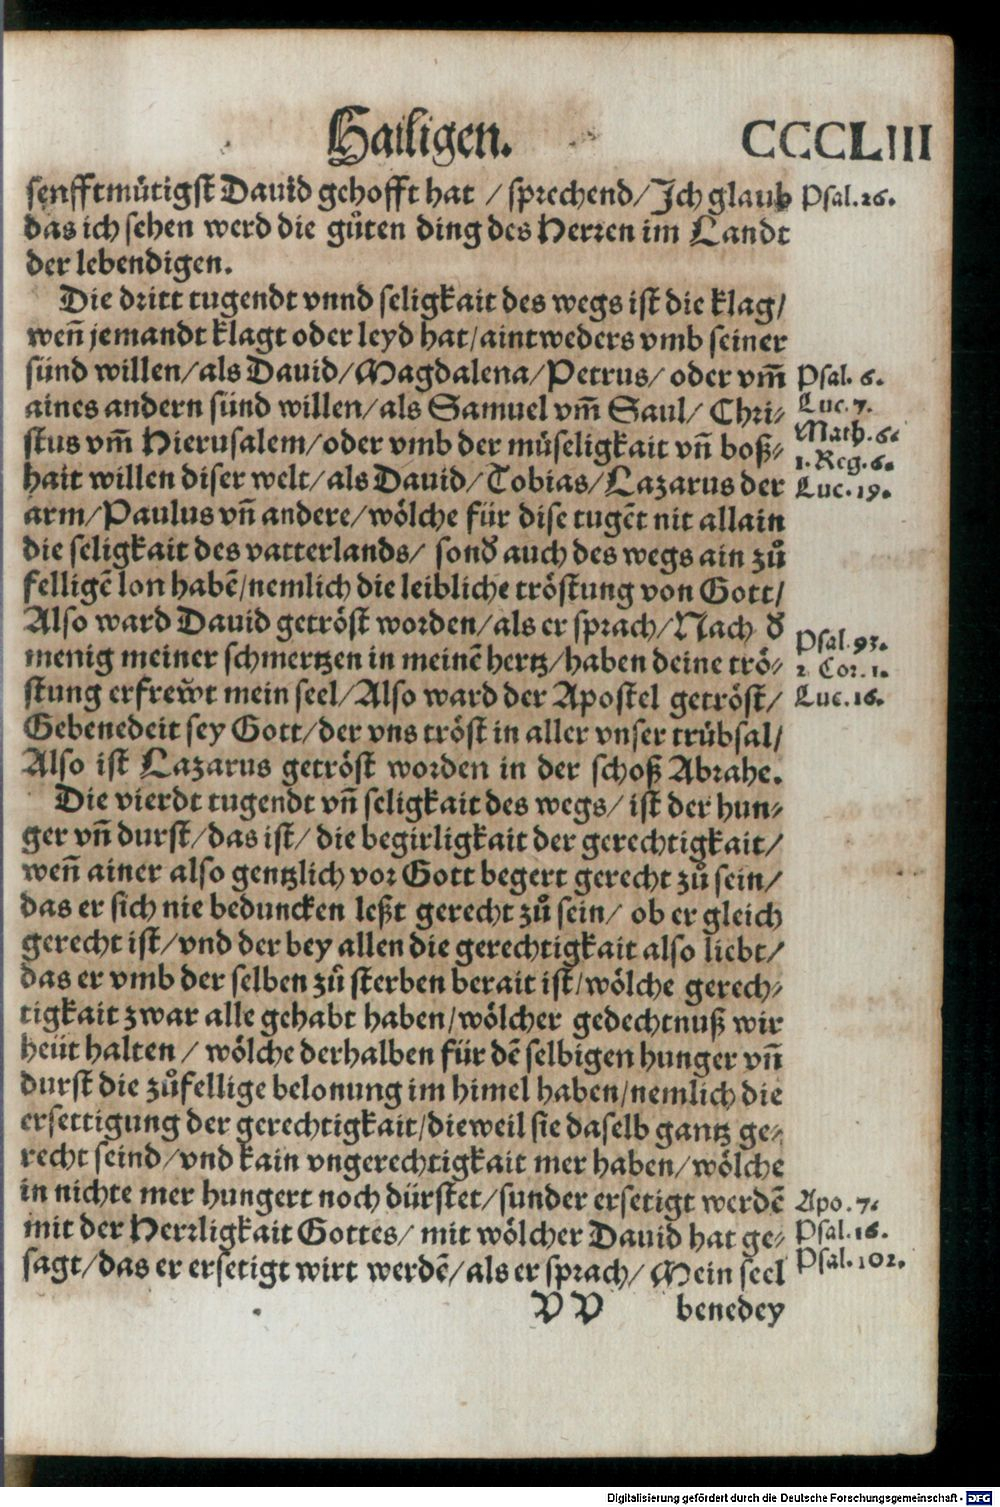 Hailigen. CCCLIII
senfftmütigst Dauid gehofft hat / sprechend/ Ich glaub Psal. 26.
das ich sehen werd die gůten ding des Herren im Landt
der lebendigen.
Die dritt tugendt vnnd seligkait des wegs ist die klag/
weñ jemandt klagt oder leyd hat/ aintweders vmb seiner
sünd willen/ als Dauid/ Magdalena/ Petrus/ oder vm̃ Psal. 6.
aines andern sünd willen/ als Samuel vm̃ Saul/ Chri- Luc. 7.
stus vm̃ Hierusalem/ oder vmb der müseligkait vñ boß- Math. 6.
hait willen diser welt/ als Dauid/ Tobias/ Lazarus der 1. Reg. 6.
arm/ Paulus vñ andere/ wölche für dise tugẽt nit allain Luc. 19.
die seligkait des vatterlands/ sond̃ auch des wegs ain zů
felligẽ lon habẽ/ nemlich die leibliche tröstung von Gott/
Also ward Dauid getröst worden/ als er sprach/ Nach d̃
menig meiner schmertzen in meinẽ hertz/ haben deine trö- Psal. 93.
stung erfrewt mein seel/ Also ward der Apostel getröst/ 2 Cor. 1.
Gebenedeit sey Gott/ der vns tröst in aller vnser trübsal/ Luc. 16.
Also ist Lazarus getröst worden in der schoß Abrahe.
Die vierdt tugendt vñ seligkait des wegs/ ist der hun-
ger vñ durst/ das ist/ die begirligkait der gerechtigkait/
weñ ainer also gentzlich vor Gott begert gerecht zů sein/
das er sich nie beduncken leßt gerecht zů sein/ ob er gleich
gerecht ist/ vnd der bey allen die gerechtigkait also liebt/
das er vmb der selben zů sterben berait ist/ wölche gerech-
tigkait zwar alle gehabt haben/ wölcher gedechtnuß wir
heüt halten / wölche derhalben für dẽ selbigen hunger vñ
durst die zůfellige belonung im himel haben/ nemlich die
ersettigung der gerechtigkait/ dieweil sie daselb gantz ge-
recht seind/ vnd kain vngerechtigkait mer haben/ wölche
in nichte mer hungert noch dürstet/ sunder ersetigt werdẽ Apo. 7.
mit der Herrligkait Gottes/ mit wölcher Dauid hat ge- Psal. 16.
sagt/ das er ersetigt wirt werdẽ/ als er sprach/ Mein seel Psal. 102.
V V benedey
Digitalisierung gefördert durch die Deutsche Forschungsgemeinschaft - DFG